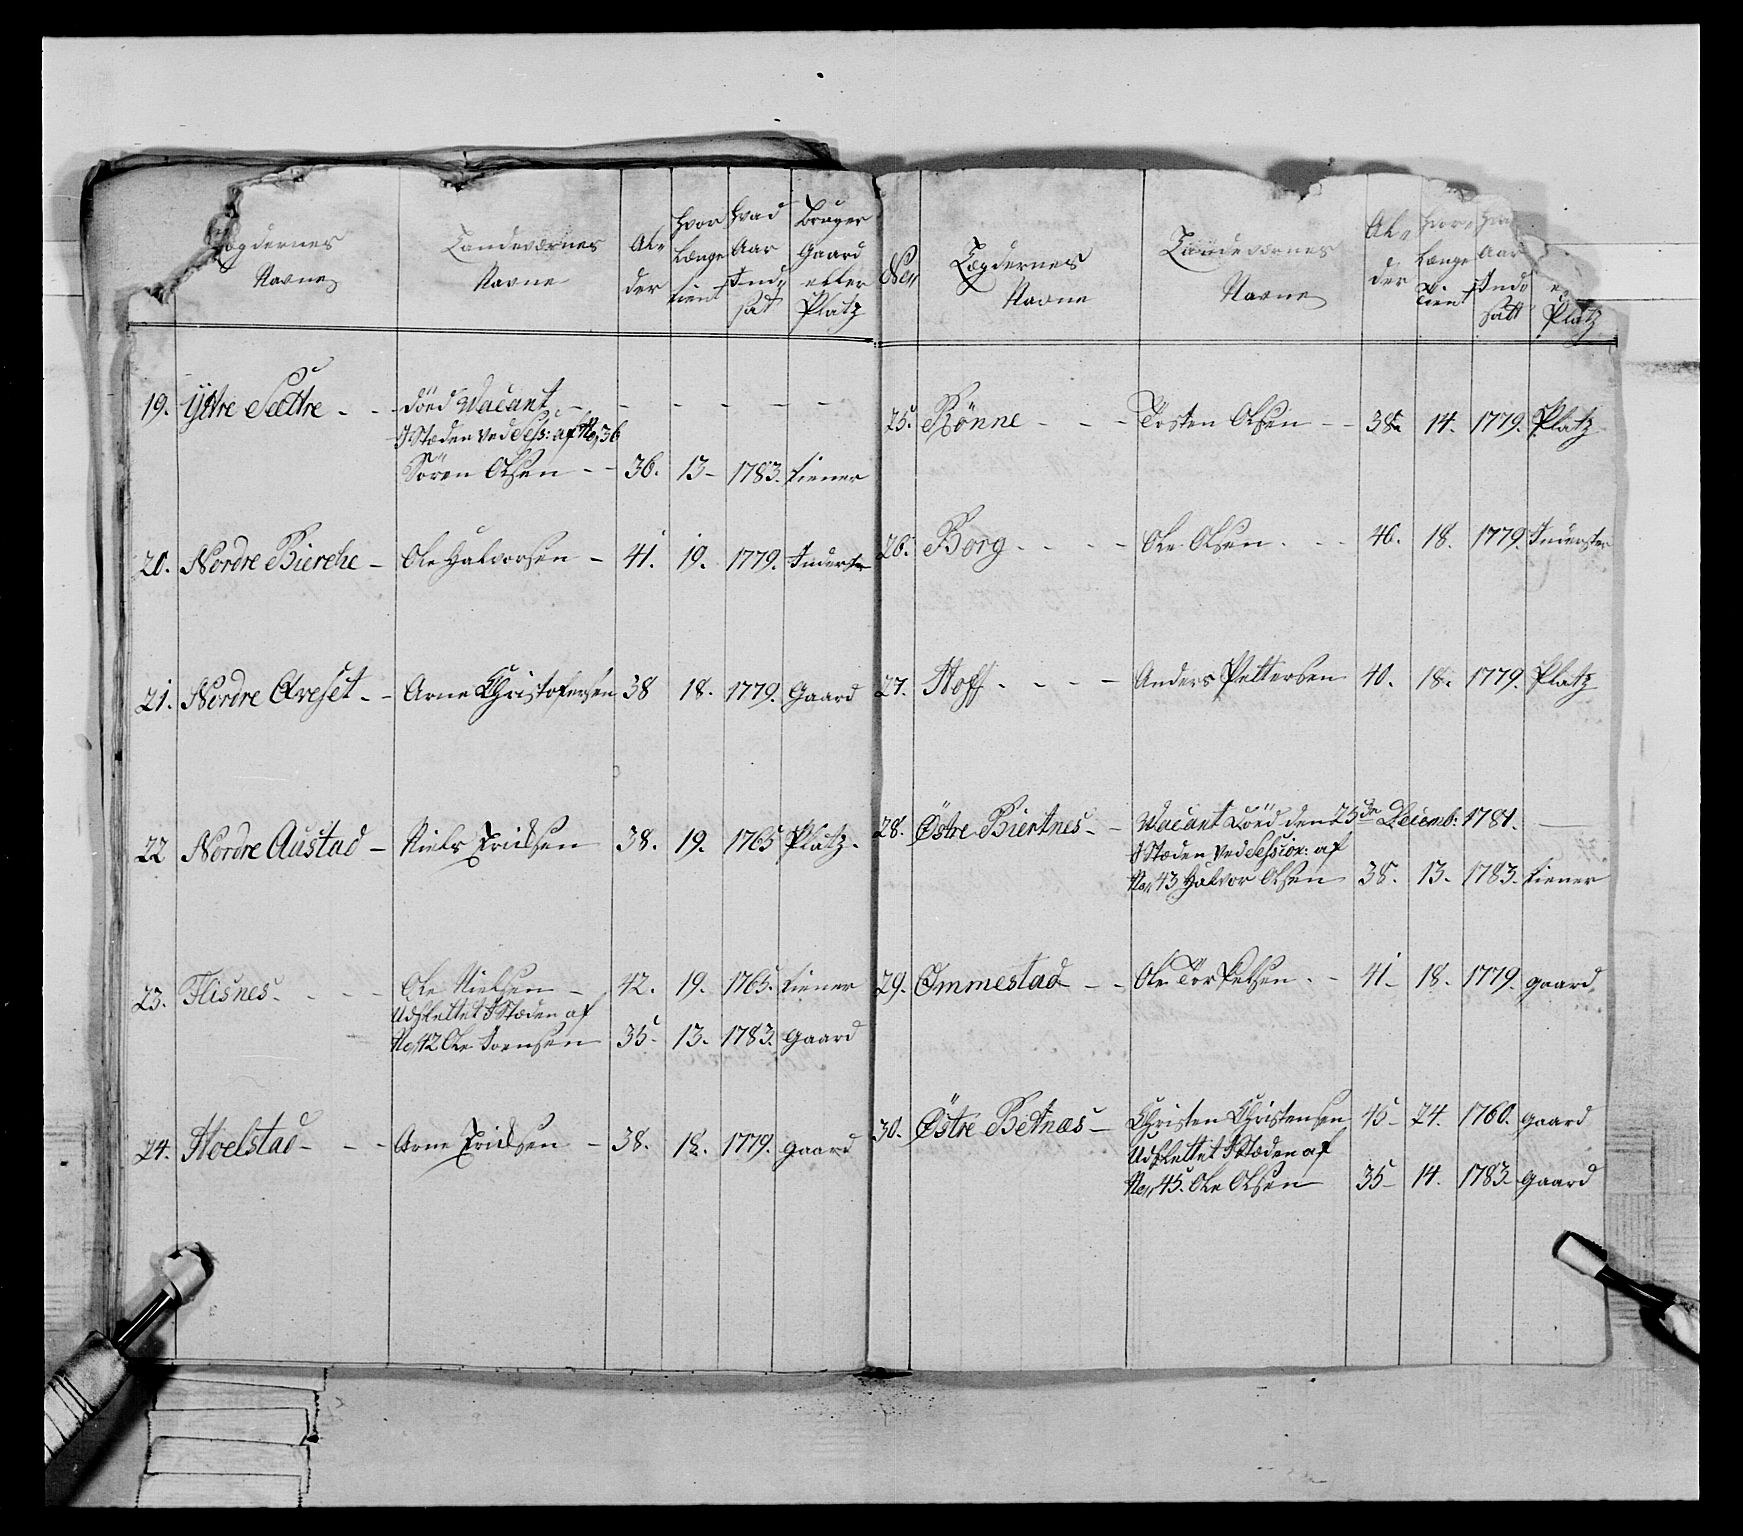 Lægdernes Navne | Landeværnes Navne | Al„ der | hvor længe tient | hvad Aar Ind„ satt | bruger Gaard eller Platz
19. Ystre Sættre - - | döed Vacant - - - - - -
I Stæden ved Sess: af No 36
Sören Olsen - - | 36. | 13 - | 1783. | tiener
20. Nordre Bierche - | Ole Halvorsen - | 41. | 19. | 1779. | Inderste
21. Nordre Alveset - - | Arne Christofersen | 38 | 18. | 1779. | Gaard
22 Nordre Austad - | Niels Ericksen | 38. | 19. | 1765 | Platz.
23. Flisnes - - - - | Ole Nielsen - | 42. | 19. | 1765. | tiener
Udslettet I Stæden af
No 42 Ole Joensen | 35. | 13. | 1783. | gaard
24. Hoelstad - - - | Arne Ericksen - | 38. | 18. | 1779. | gaard
No„ | Lægdernes Navne | Landeværnes Navne | Al„ der | hvor længe tient | Aar Ind„ satt | Platz
25. Rønne - - - | Torsten Olsen - - | 38. | 14. | 1779. | Platz
26. Borg - - - - | Ole Olsen - - | 40. | 18. | 1779. | Inderster
27. Hoff - - - - | Anders Pettersen | 40. | 18. | 1779. | Platz
28. Östre Biertnes - - | Vacant Döed den 25de Decemb: 1781. -
I Stæden ved Session: af
No 43 Halvor Olsen | 38. | 13. | 1783. | tiener
29. Ommestad - - | Ole Torkelsen - - | 41 - | 18. | 1779. | gaard
30. Östre Betnæs - | Christen Christensen | 45 - | 24. | 1760. | gaard
Udslettet I Stæden af
No 45. Ole Olsen | 35 - | 14. | 1783. | gaard